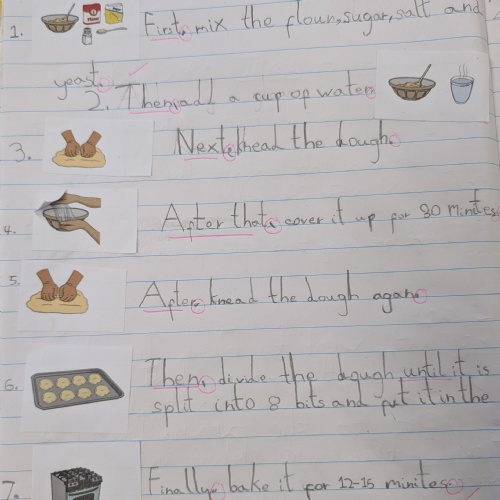 1. First, mix the flour, sugar, salt and
yeast.
2. Then, add a cup of water.
3. Next, knead the dough.
4. After that, cover it up for 30 mintes.
5. After, knead the dough agan.
6. Then, divide the dough until it is
split into 8 bits and put it in the
7. Finally, bake it for 12-15 minites.